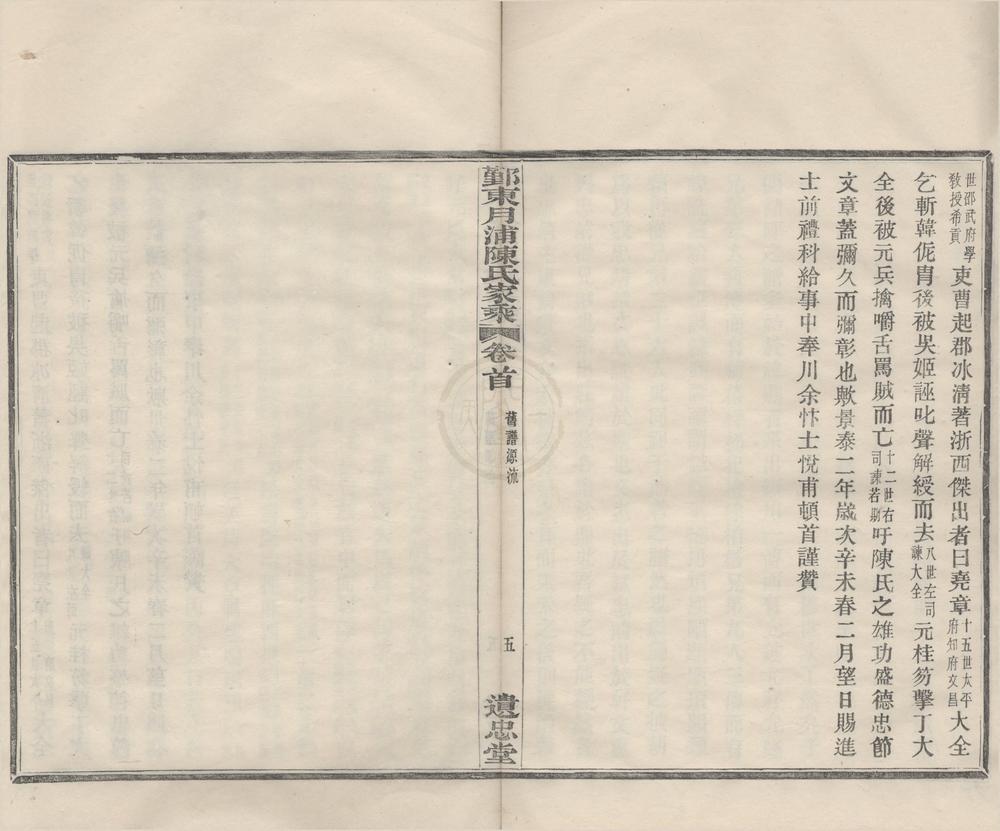 世邵武府學教授希貢吏曹起郡冰清著浙西傑出者曰堯章十五世太平府知府文昌大全
乞斬韓侂胄後被吳姬誣叱聲解綬而去八世左司諫大全元桂笏擊丁大
全後被元兵擒嚼舌罵賊而亡十二世右司諫若吁陳氏之雄功盛德忠節
文章蓋彌久而彌彰也歟景泰二年歲次辛未春二月望日賜進
士前禮科給事中奉川余忭士悅甫頓首謹贊
鄞東月浦陳氏家乘 卷首 舊譜源流 五 遺忠堂